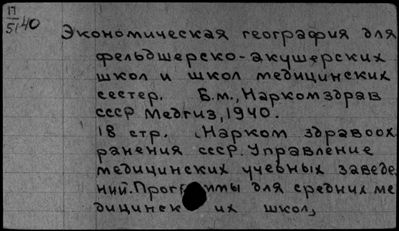 17
5140
Экономическая география для
фельдшерско-акушерских
школ и школ медицинских
сестер. Б.м., Наркомздрав
СССР Медгиз, 1940.
18 стр. (Нарком здравоох
ранения СССР. Управление
медицинских учебных заведе
ний. Программы для средних ме
дицинск их школ,